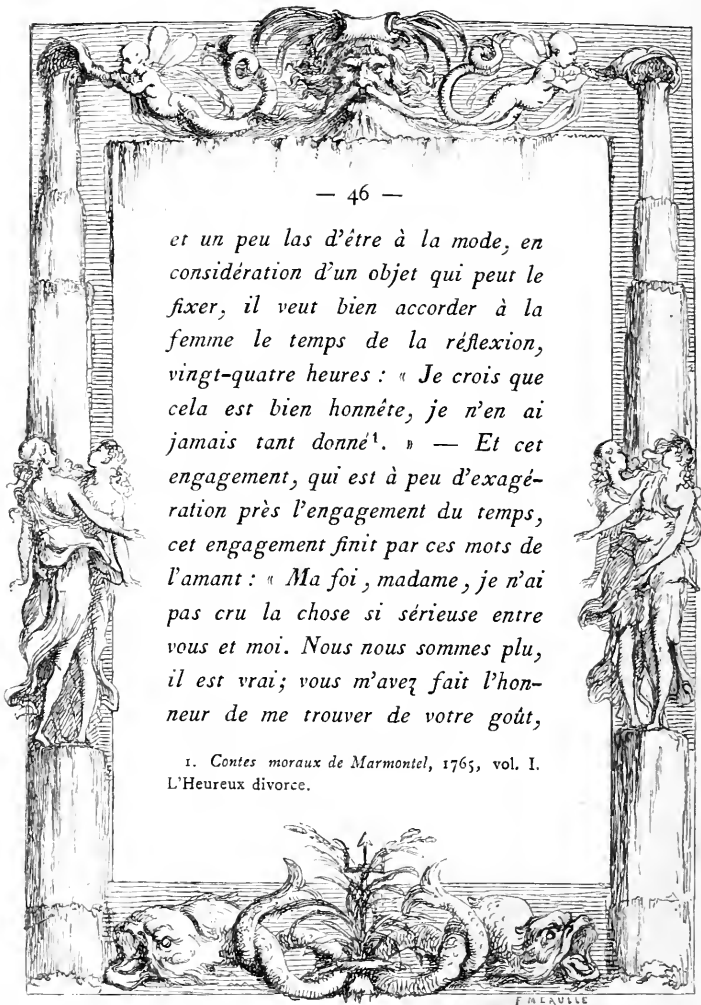 — 46 —
et un peu las d'être à la mode, en
considération d'un objet qui peut le
fixer, il veut bien accorder à la
femme le temps de la réflexion,
vingt-quatre heures : « Je crois que
cela est bien honnête, je n'en ai
jamais tant donné¹. » — Et cet
engagement, qui est à peu d'exagé-
ration près l'engagement du temps,
cet engagement finit par ces mots de
l'amant : « Ma foi, madame, je n'ai
pas cru la chose si sérieuse entre
vous et moi. Nous nous sommes plu,
il est vrai; vous m'avez fait l'hon-
neur de me trouver de votre goût,
1. Contes moraux de Marmontel, 1765, vol. I.
L'Heureux divorce.